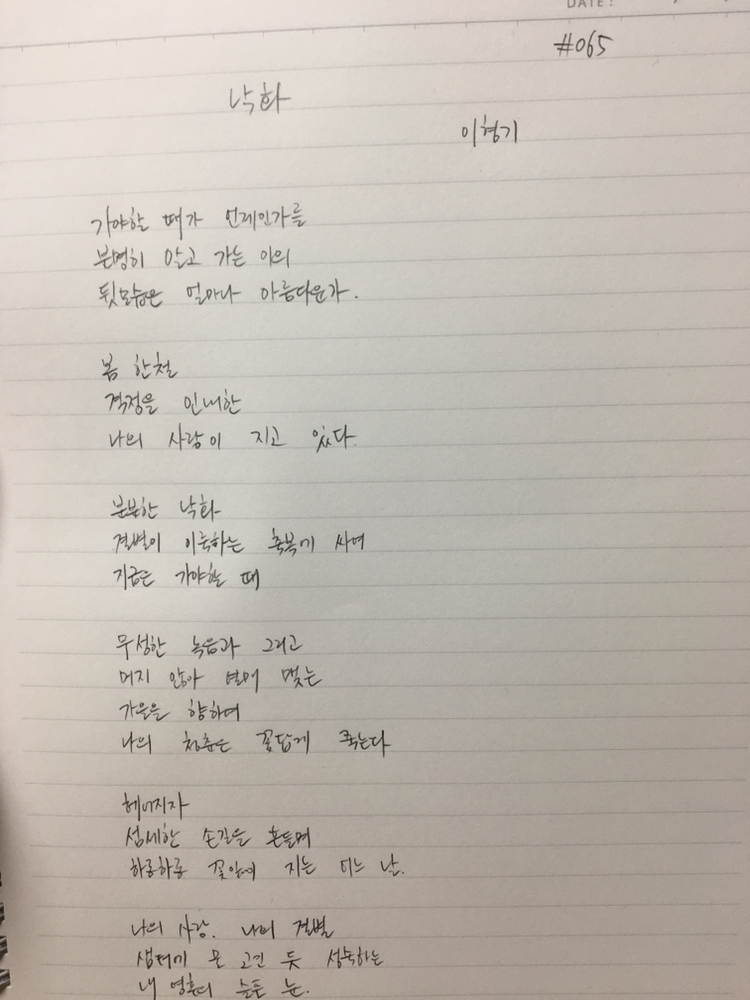 DATE:
#065
낙화
이형기
가야할 때가 언제인가를
분명히 알고 가는 이의
뒷모습은 얼마나 아름다운가.
봄 한철
격정을 인내한
나의 사랑이 지고 있다.
분분한 낙화
결별이 이룩하는 축복에 싸여
지금은 가야할 때
무성한 녹음과 그리고
머지 않아 열매 맺는
가을을 향하여
나의 청춘은 꽃답게 죽는다
헤어지자
섬세한 손길을 흔들며
하롱하롱 꽃잎이 지는 어느 날.
나의 사랑. 나의 결별
샘터에 물 고인 듯 성숙하는
내 영혼의 슬픈 눈.